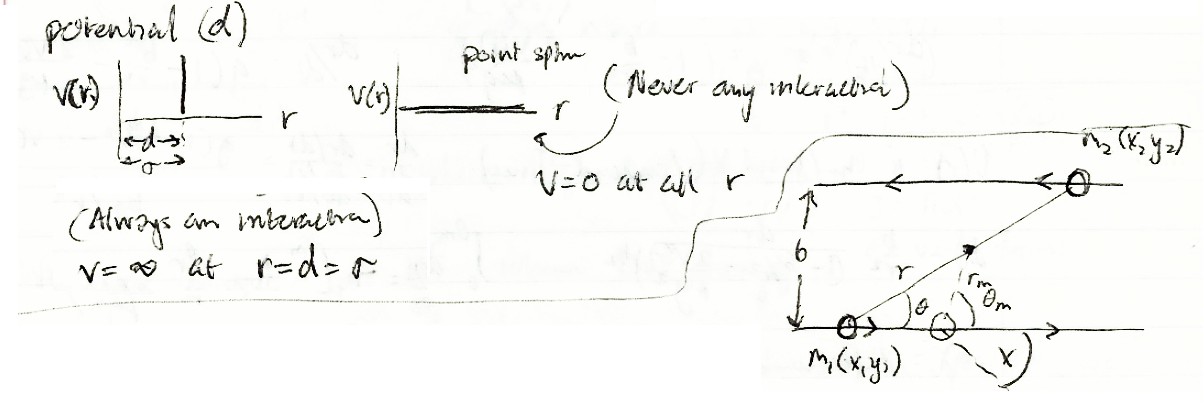 potential (d)
V(r)
r
d
σ
(Always an interaction)
V = ∞ at r = d = σ
point sphere
V(r)
r
(Never any interaction)
V = 0 at all r
m₂ (x₂ y₂)
b
r
θ
rₘ
θₘ
χ
m₁ (x₁ y₁)